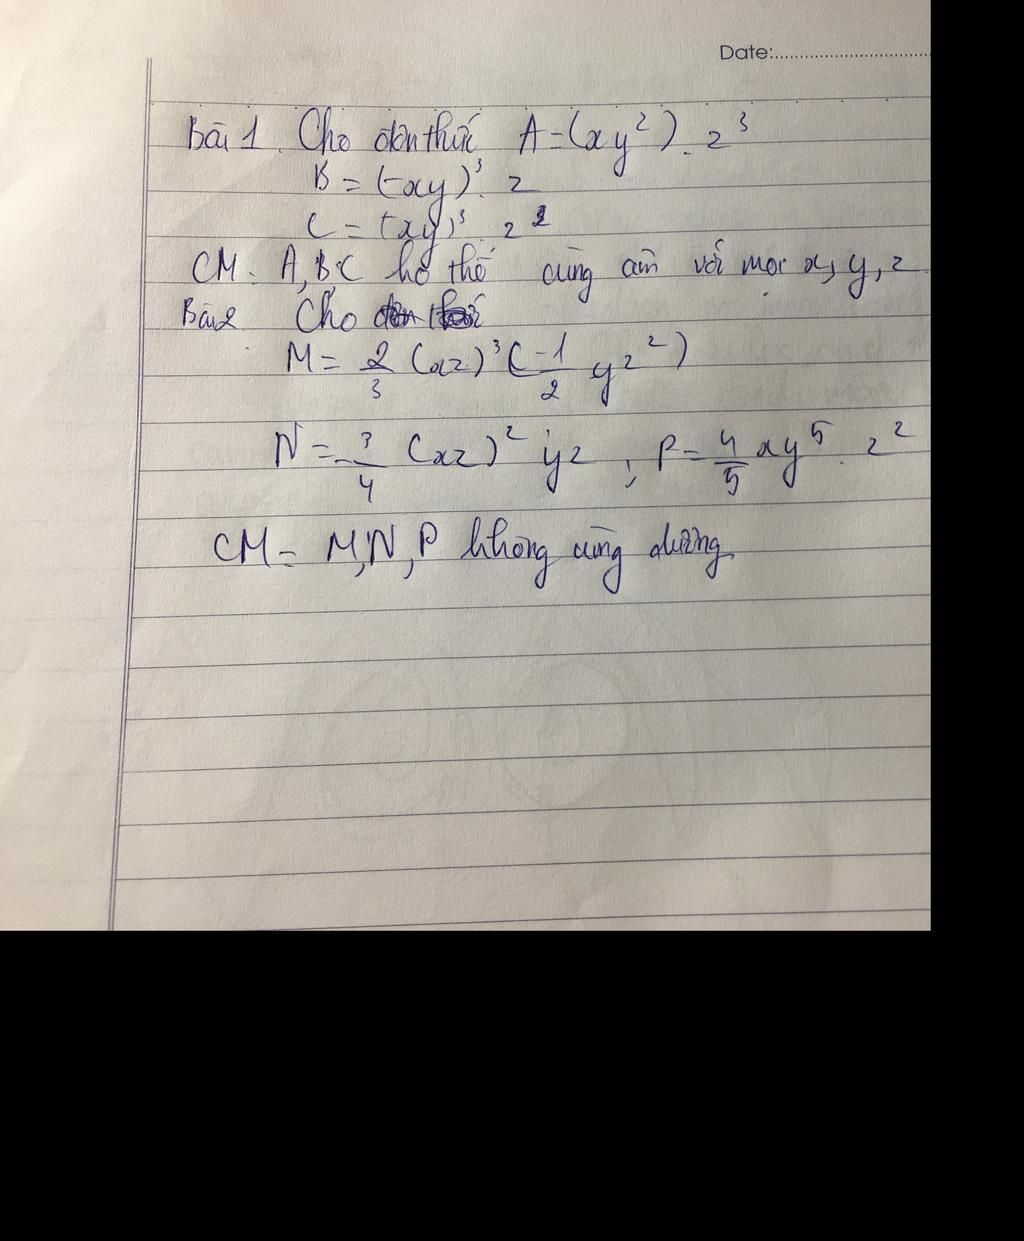 Date:
Bài 1. Cho đơn thức A = (xy²). z³
B = (-xy)³. z
C = (xy)³ z²
CM. A, B, C thể cùng âm với mọi x, y, z
Bài 2 Cho
M = 2/3 (xz)³ (-1/2 yz²)
N = -3/4 (xz)² yz ; P = 4/5 xy⁵. z²
CM = M, N, P không cùng dương